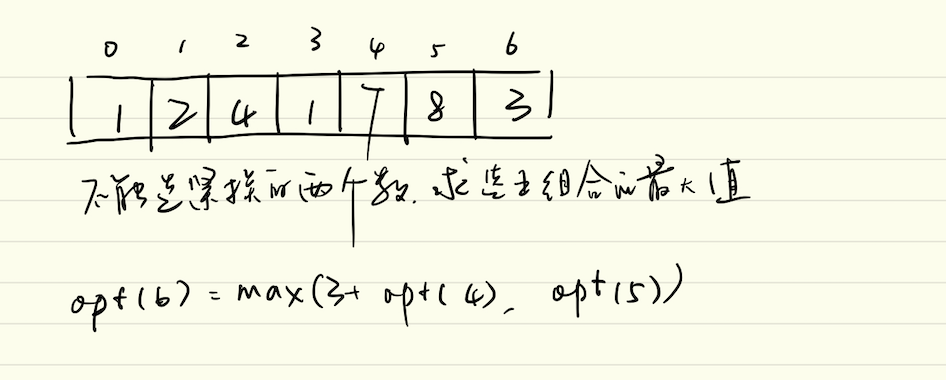 0 1 2 3 4 5 6
1 2 4 1 7 8 3
不能选紧挨的两个数.求选出组合的最大值
opt(6) = max(3+ opt(4), opt(5))